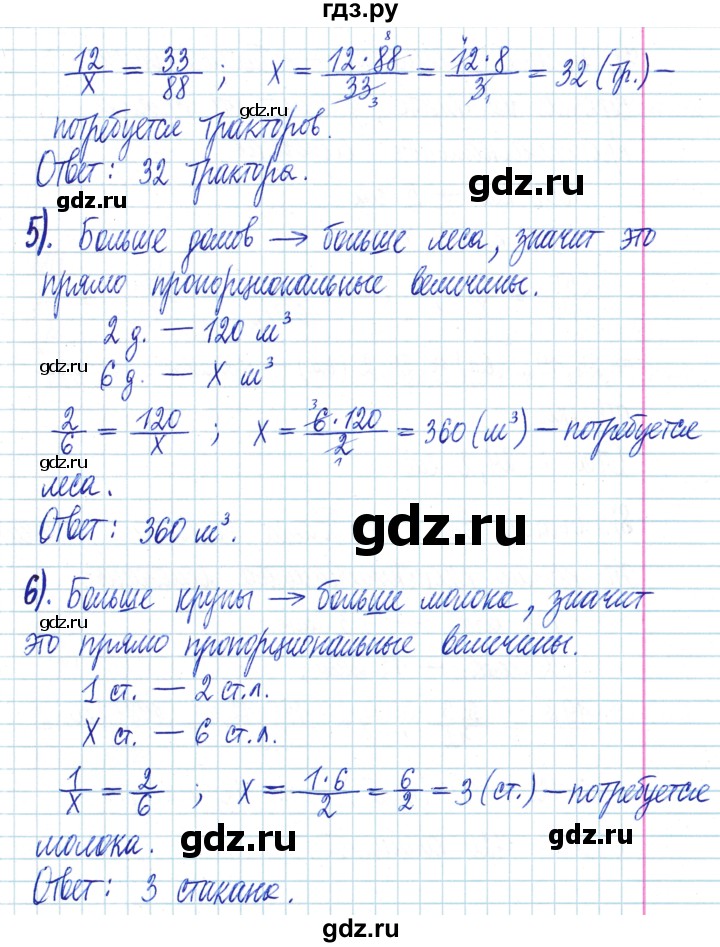 гдз.ру
12/x = 33/88 ; x = 12·88/33 = 12·8/3 = 32 (тр.) —
gdz.ru
потребуется тракторов.
gdz.ru
Ответ: 32 трактора.
gdz.ru
gdz.ru
5). Больше домов → больше леса, значит это
прямо пропорциональные величины.
2 д. — 120 м³
gdz.ru
gdz.ru
6 д. — x м³
2/6 = 120/x ; x = 6·120/2 = 360 (м³) — потребуется
gdz.ru
gdz.ru
леса.
Ответ: 360 м³.
gdz.ru
6). Больше крупы → больше молока, значит
gdz.ru
gdz.ru
это прямо пропорциональные величины.
1 ст. — 2 ст.л.
x ст. — 6 ст.л.
gdz.ru
gdz.ru
1/x = 2/6 ; x = 1·6/2 = 6/2 = 3 (ст.) — потребуется
молока.
gdz.ru
gdz.ru
Ответ: 3 стакана.
gdz.ru
gdz.ru